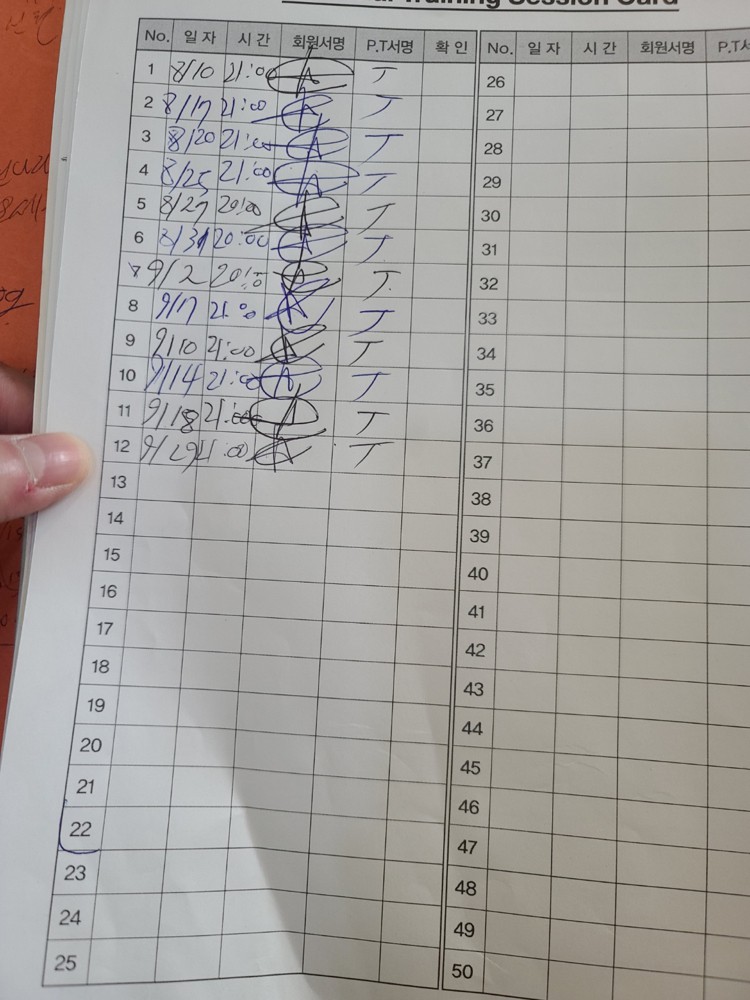 Training Session Card
No. 일 자 시 간 회원서명 P.T서명 확 인 No. 일 자 시 간 회원서명
1 8/10 21:00 T 26
2 8/17 21:00 T 27
3 8/20 21:00 T 28
4 8/25 21:00 T 29
5 8/27 20:00 T 30
6 8/31 20:00 T 31
7 9/2 20:00 T 32
8 9/7 21:00 T 33
9 9/10 21:00 T 34
10 9/14 21:00 T 35
11 9/18 21:00 T 36
12 9/29 21:00 T 37
13 38
14 39
15 40
16 41
17 42
18 43
19 44
20 45
21 46
22 47
23 48
24 49
25 50